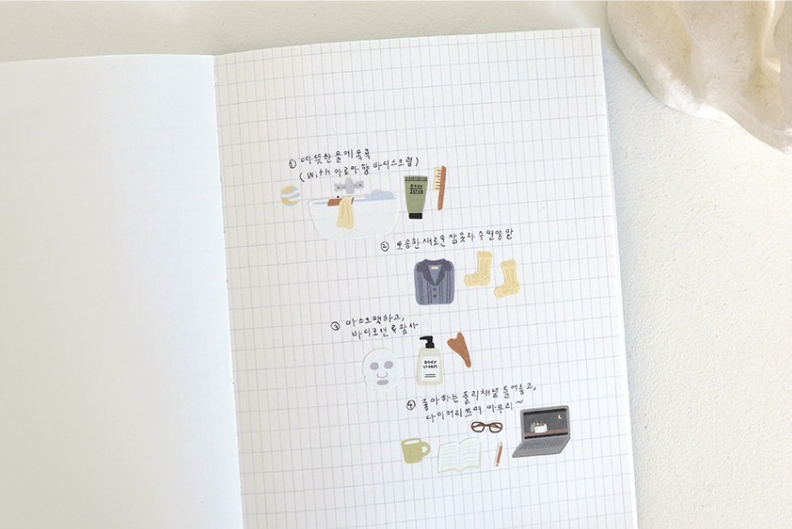 ① 따뜻한 물에 목욕
(with 아로마 향 바디스크럽)
BODY
SCRUB
② 뽀송한 새로운 잠옷과 수면양말
③ 마스크팩하고,
바디로션 & 괄사
BODY
CREAM
④ 좋아하는 플리채널 틀어놓고,
다이어리 쓰며 마무리~